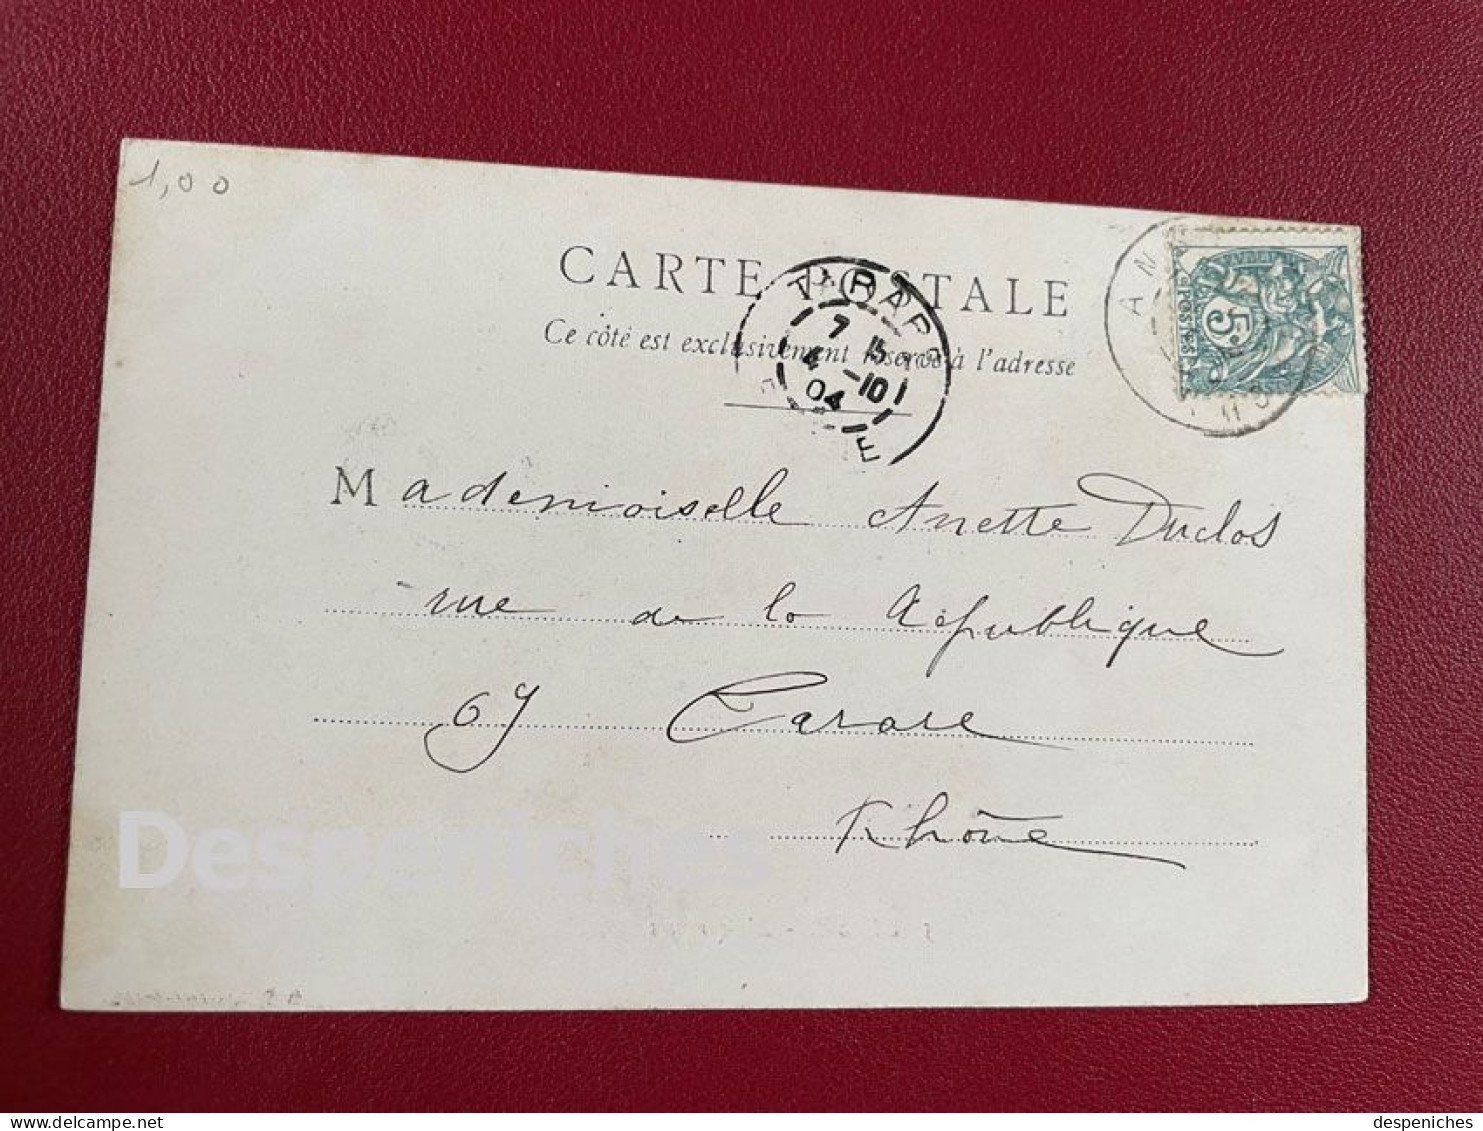 1,00
CARTE POSTALE
Ce côté est exclusivement réservé à l'adresse
TARARE
7 15
4 -10
04
5c
POSTES
Mademoiselle Anette Duclos
rue de la République
69 Tarare
Rhône
Despeniches
delcampe.net
despeniches